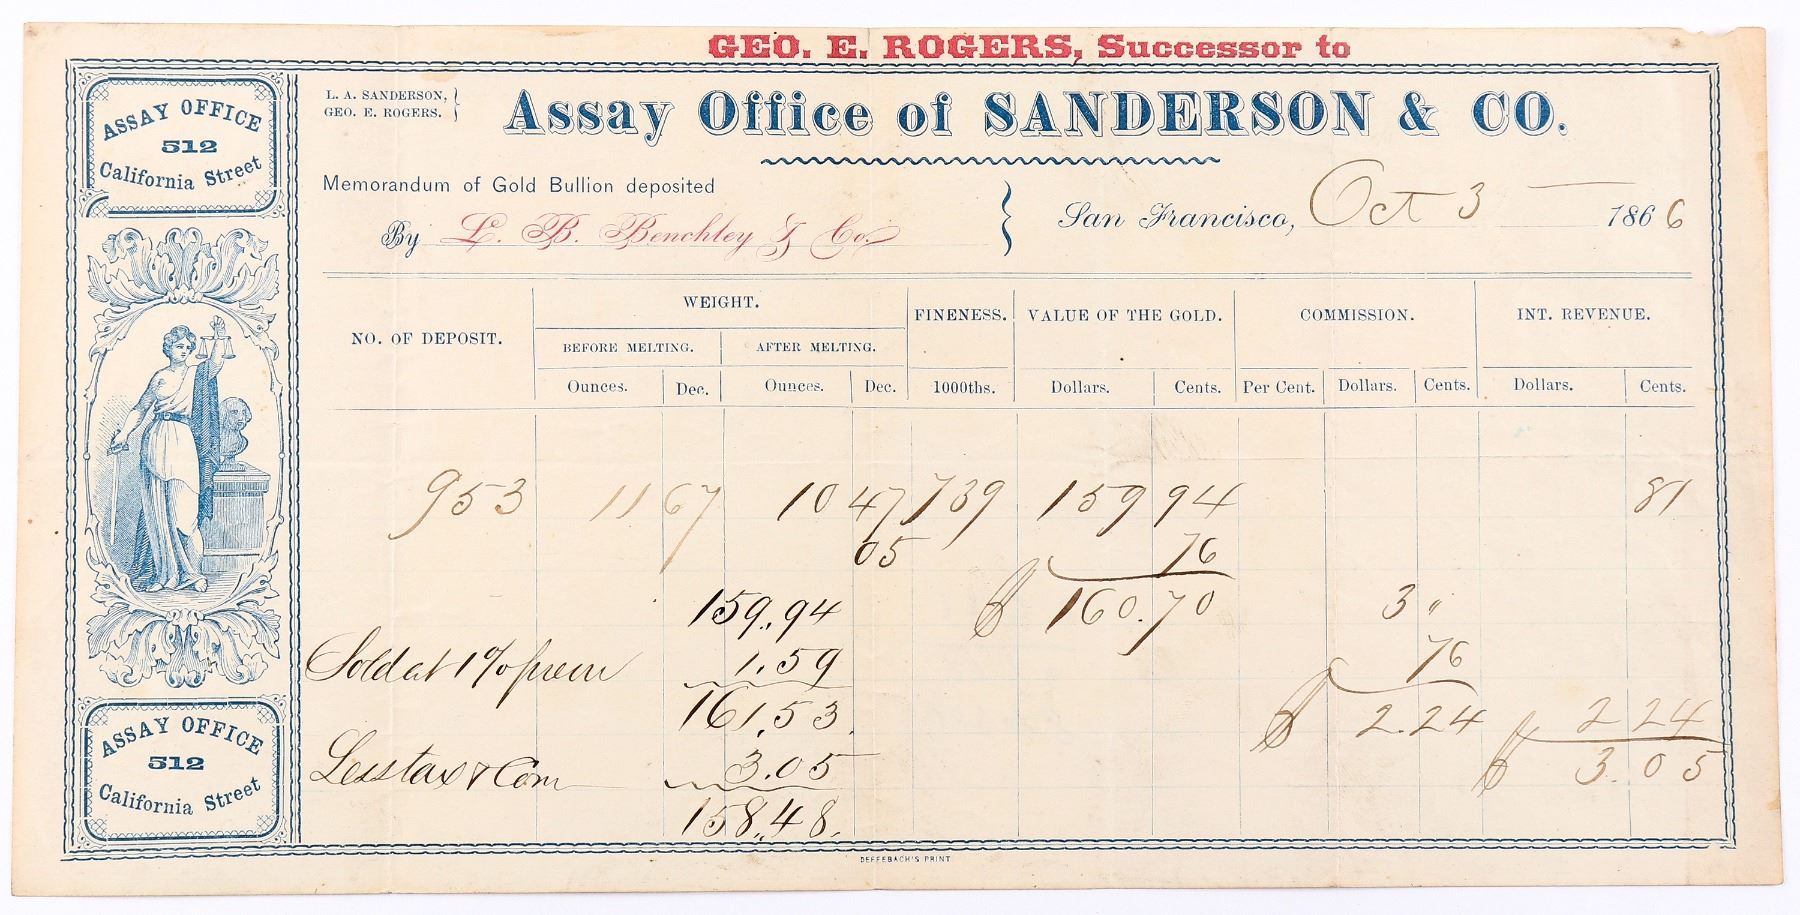 GEO. E. ROGERS, Successor to
ASSAY OFFICE
512
California Street
L. A. SANDERSON,
GEO. E. ROGERS.
Assay Office of SANDERSON & CO.
Memorandum of Gold Bullion deposited
By L. B. Benchley & Co.
San Francisco, Oct 3 1866
NO. OF DEPOSIT. WEIGHT. FINENESS. VALUE OF THE GOLD. COMMISSION. INT. REVENUE.
BEFORE MELTING. AFTER MELTING.
Ounces. Dec. Ounces. Dec. 1000ths. Dollars. Cents. Per Cent. Dollars. Cents. Dollars. Cents.
953 11 67 10 47 739 159 94 81
05 76
159.94 $ 160.70 3 "
Sold at 1% prem 1.59 76
161.53 $ 2.24 2 24
Less tax & Com 3.05 $ 3.05
158.48
ASSAY OFFICE
512
California Street
DEFFEBACH'S PRINT